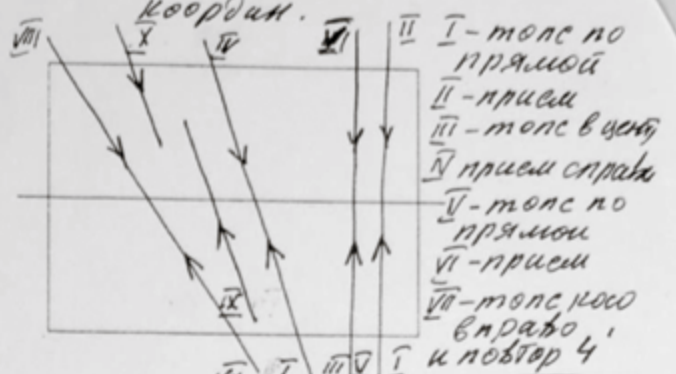 координ.
VIII
X
IV
VI
II
I - топс по
прямой
II - прием
III - топс в цент
IV прием справа
V - топс по
прямой
VI - прием
VII - топс косо
вправо
и повтор 4'
IX
III V I